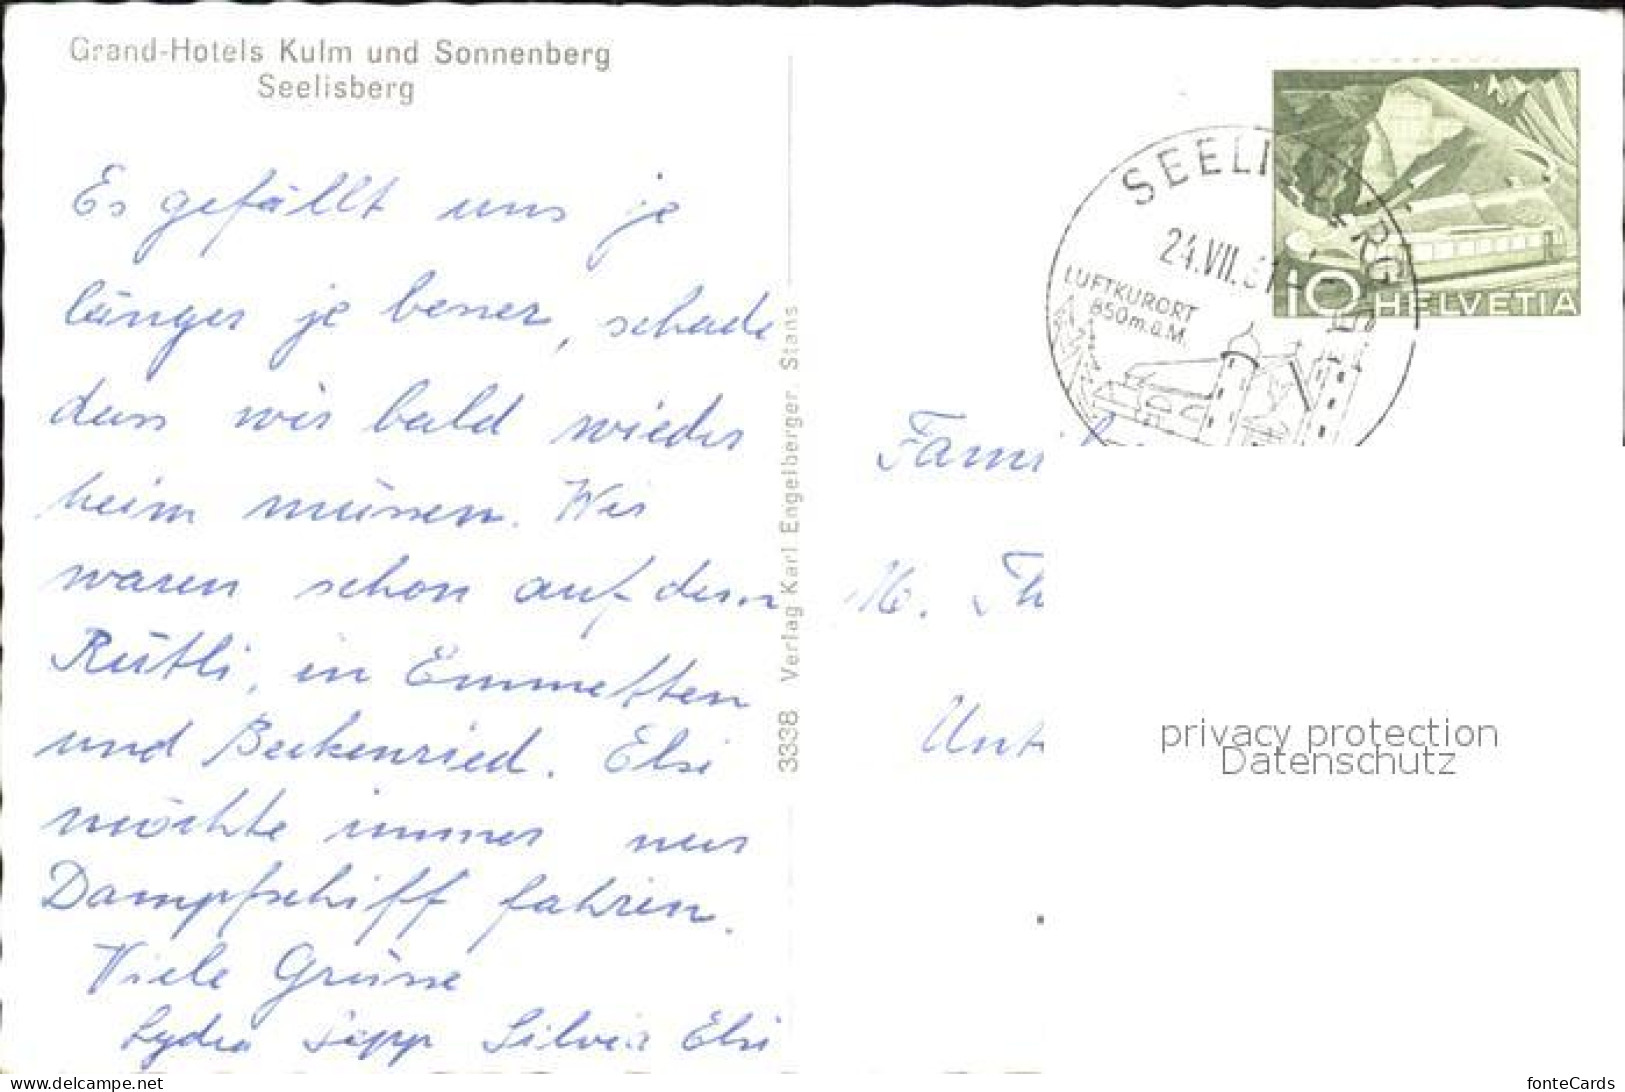 Grand-Hotels Kulm und Sonnenberg
Seelisberg
Es gefällt uns je
länger je besser, schade
dass wir bald wieder
heim müssen. Wir
waren schon auf dem
Rütli, in Emmetten
und Beckenried. Elsi
möchte immer nur
Dampfschiff fahren.
Viele Grüsse
Lydia Sepp Silvia Elsi
3338 Verlag Karl Engelberger, Stans
SEELISBERG
24.VII.61
LUFTKURORT
850m.ü.M.
10 HELVETIA
Fami
M. Th
Unt
privacy protection
Datenschutz
www.delcampe.net
fonteCards